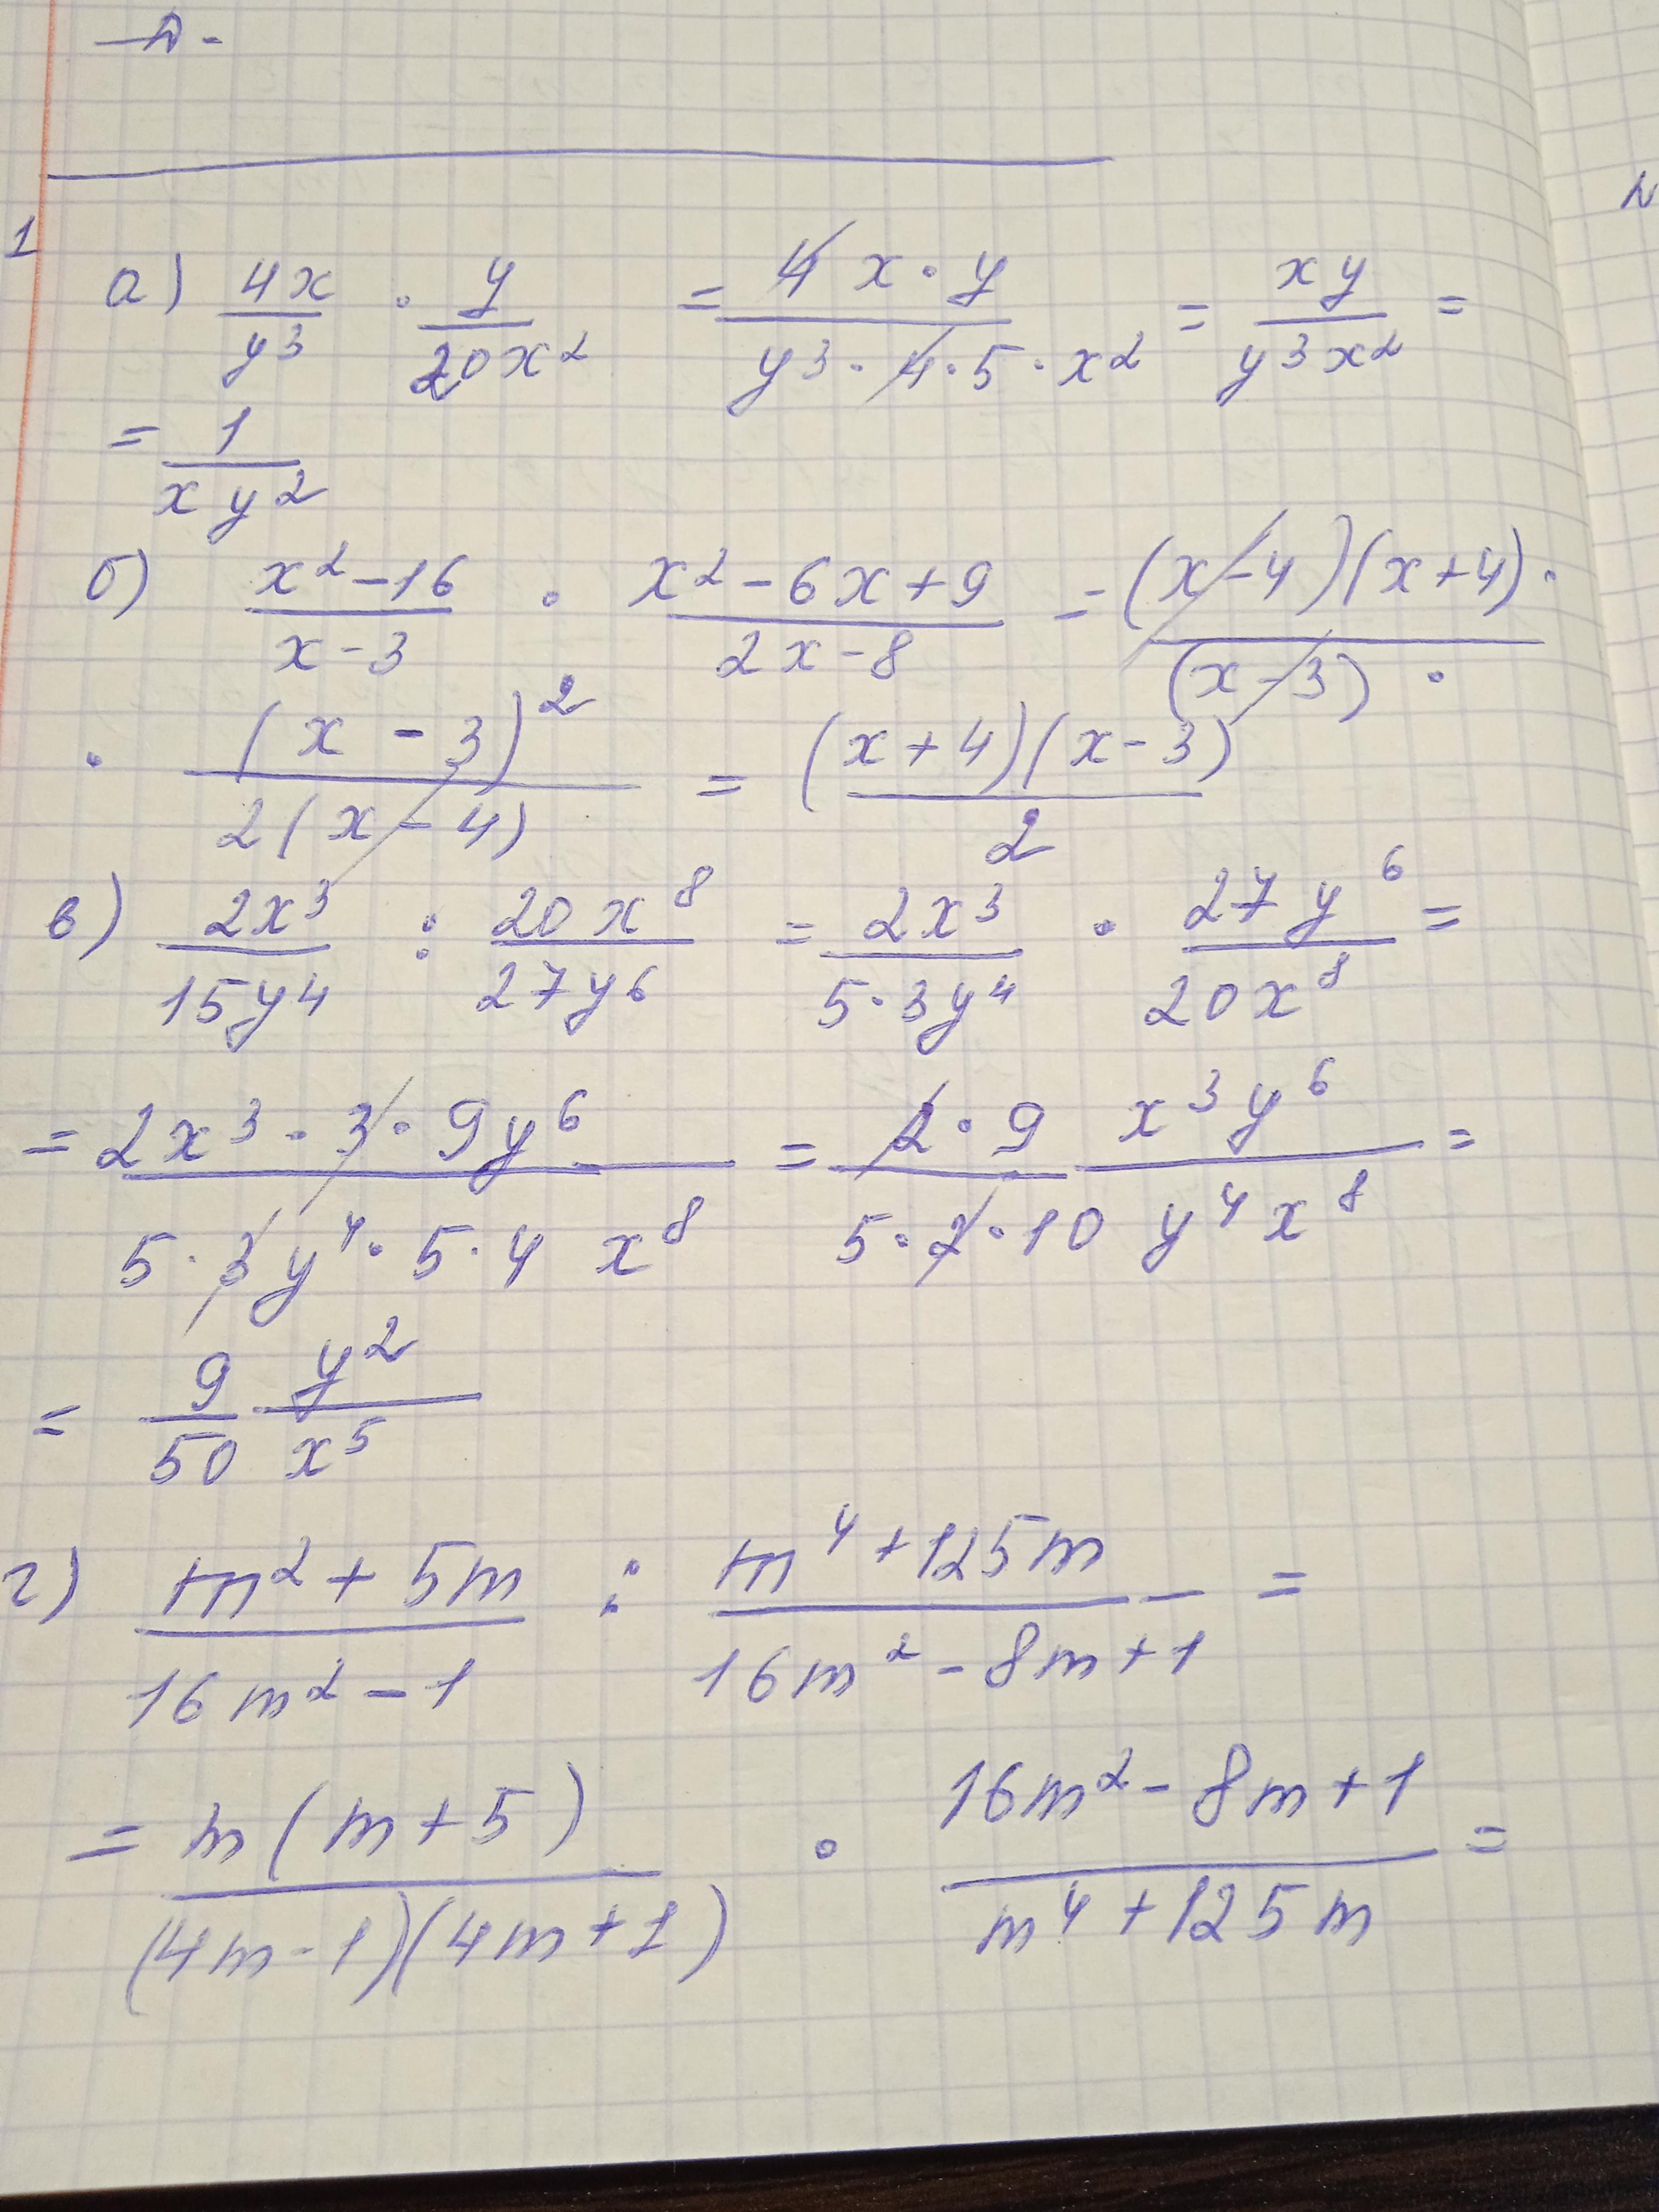 1
а) 4x/y³ · y/20x² = 4x·y/y³·4·5·x² = xy/y³x² =
= 1/xy²
б) x²-16/x-3 · x²-6x+9/2x-8 = (x-4)(x+4)·/(x-3)·
· (x-3)²/2(x-4) = (x+4)(x-3)/2
в) 2x³/15y⁴ : 20x⁸/27y⁶ = 2x³/5·3y⁴ · 27y⁶/20x⁸ =
= 2x³·3·9y⁶/5·3y⁴·5·4x⁸ = 2·9/5·2·10 x³y⁶/y⁴x⁸ =
= 9/50 y²/x⁵
г) m²+5m/16m²-1 : m⁴+125m/16m²-8m+1 =
= m(m+5)/(4m-1)(4m+1) · 16m²-8m+1/m⁴+125m =